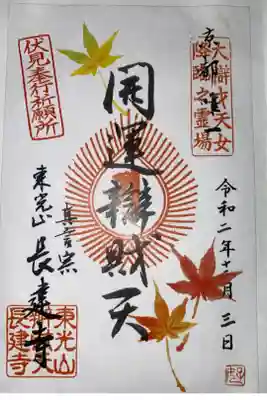 京都
大辯才天女
之霊場
令和二年十二月三日
開運辯財天
伏見奉行祈願所
真言宗
東光山 長建寺
東光山
長建寺